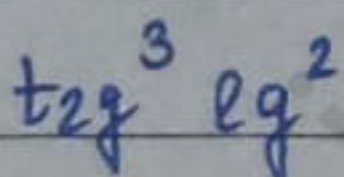 t₂g³ eg²